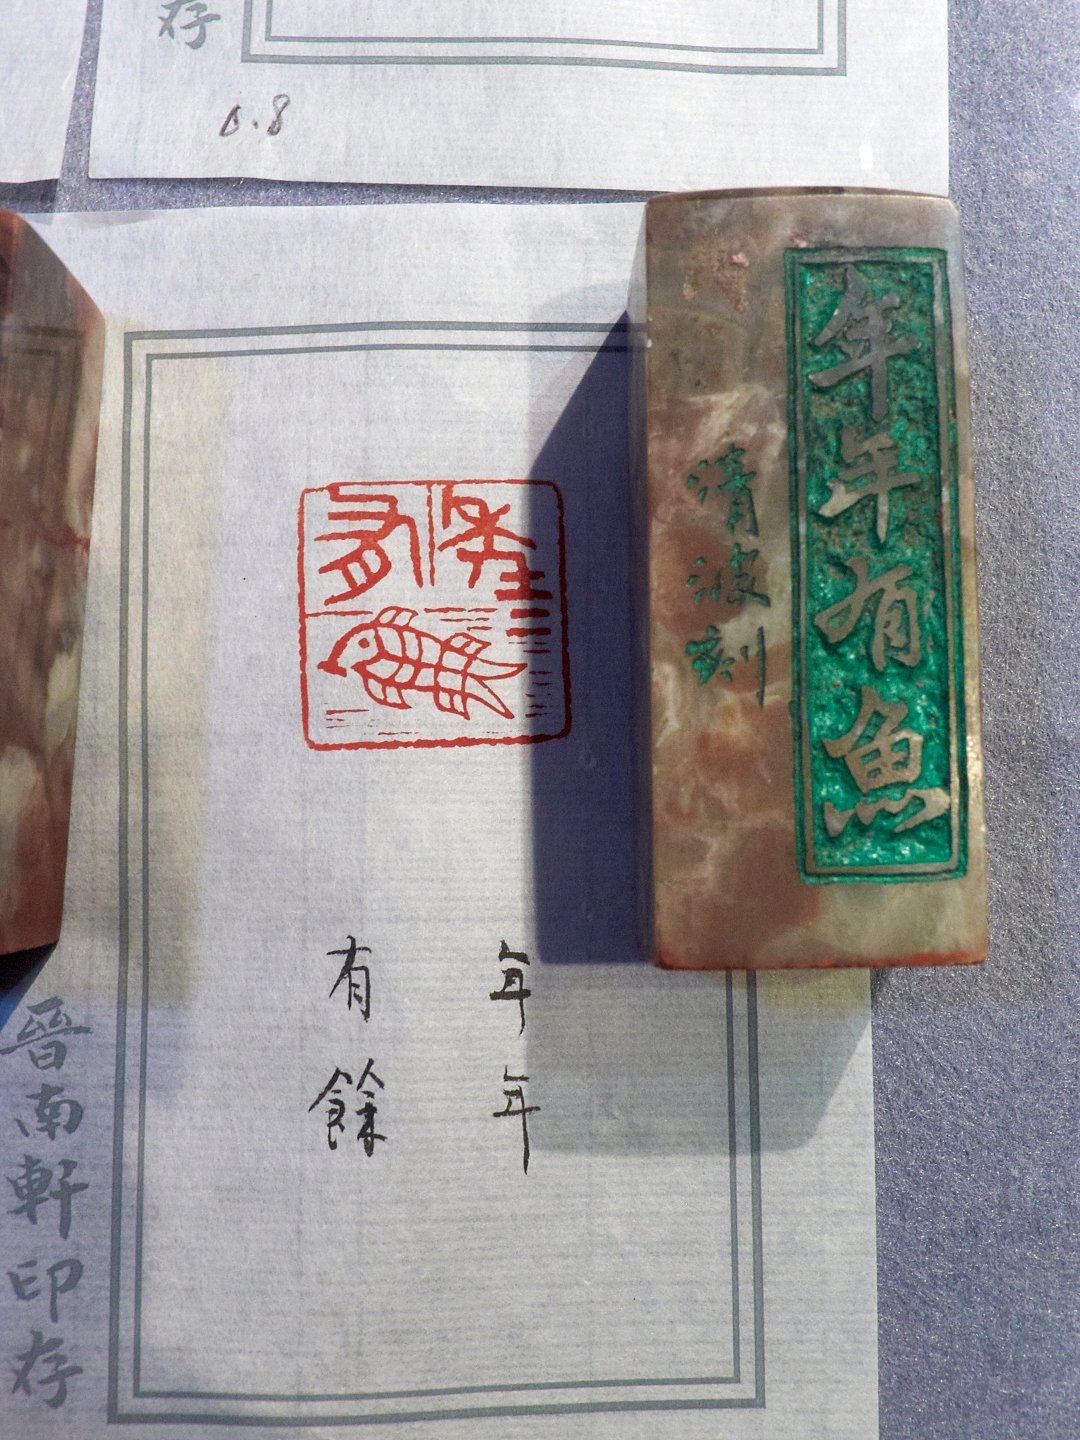 存
0.8
年年有魚
清波刻
年年
有餘
晋南軒印存